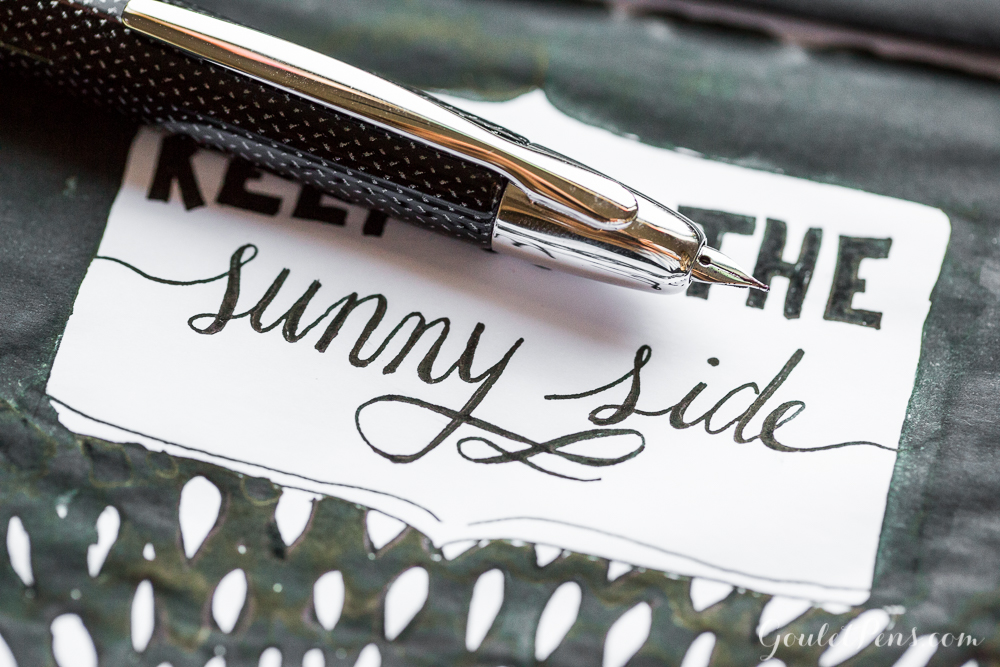 KEEP THE
sunny side
GouletPens.com